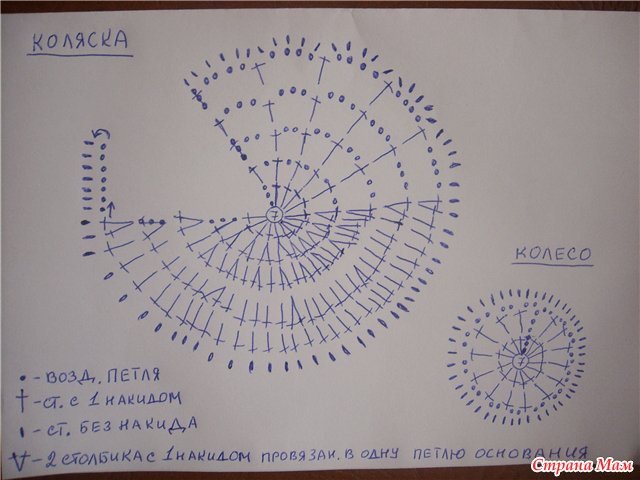 КОЛЯСКА
7
КОЛЕСО
7
• - ВОЗД. ПЕТЛЯ
† - СТ. С 1 НАКИДОМ
- СТ. БЕЗ НАКИДА
V - 2 СТОЛБИКА С 1 НАКИДОМ ПРОВЯЗАН. В ОДНУ ПЕТЛЮ ОСНОВАНИЯ
Страна Мам